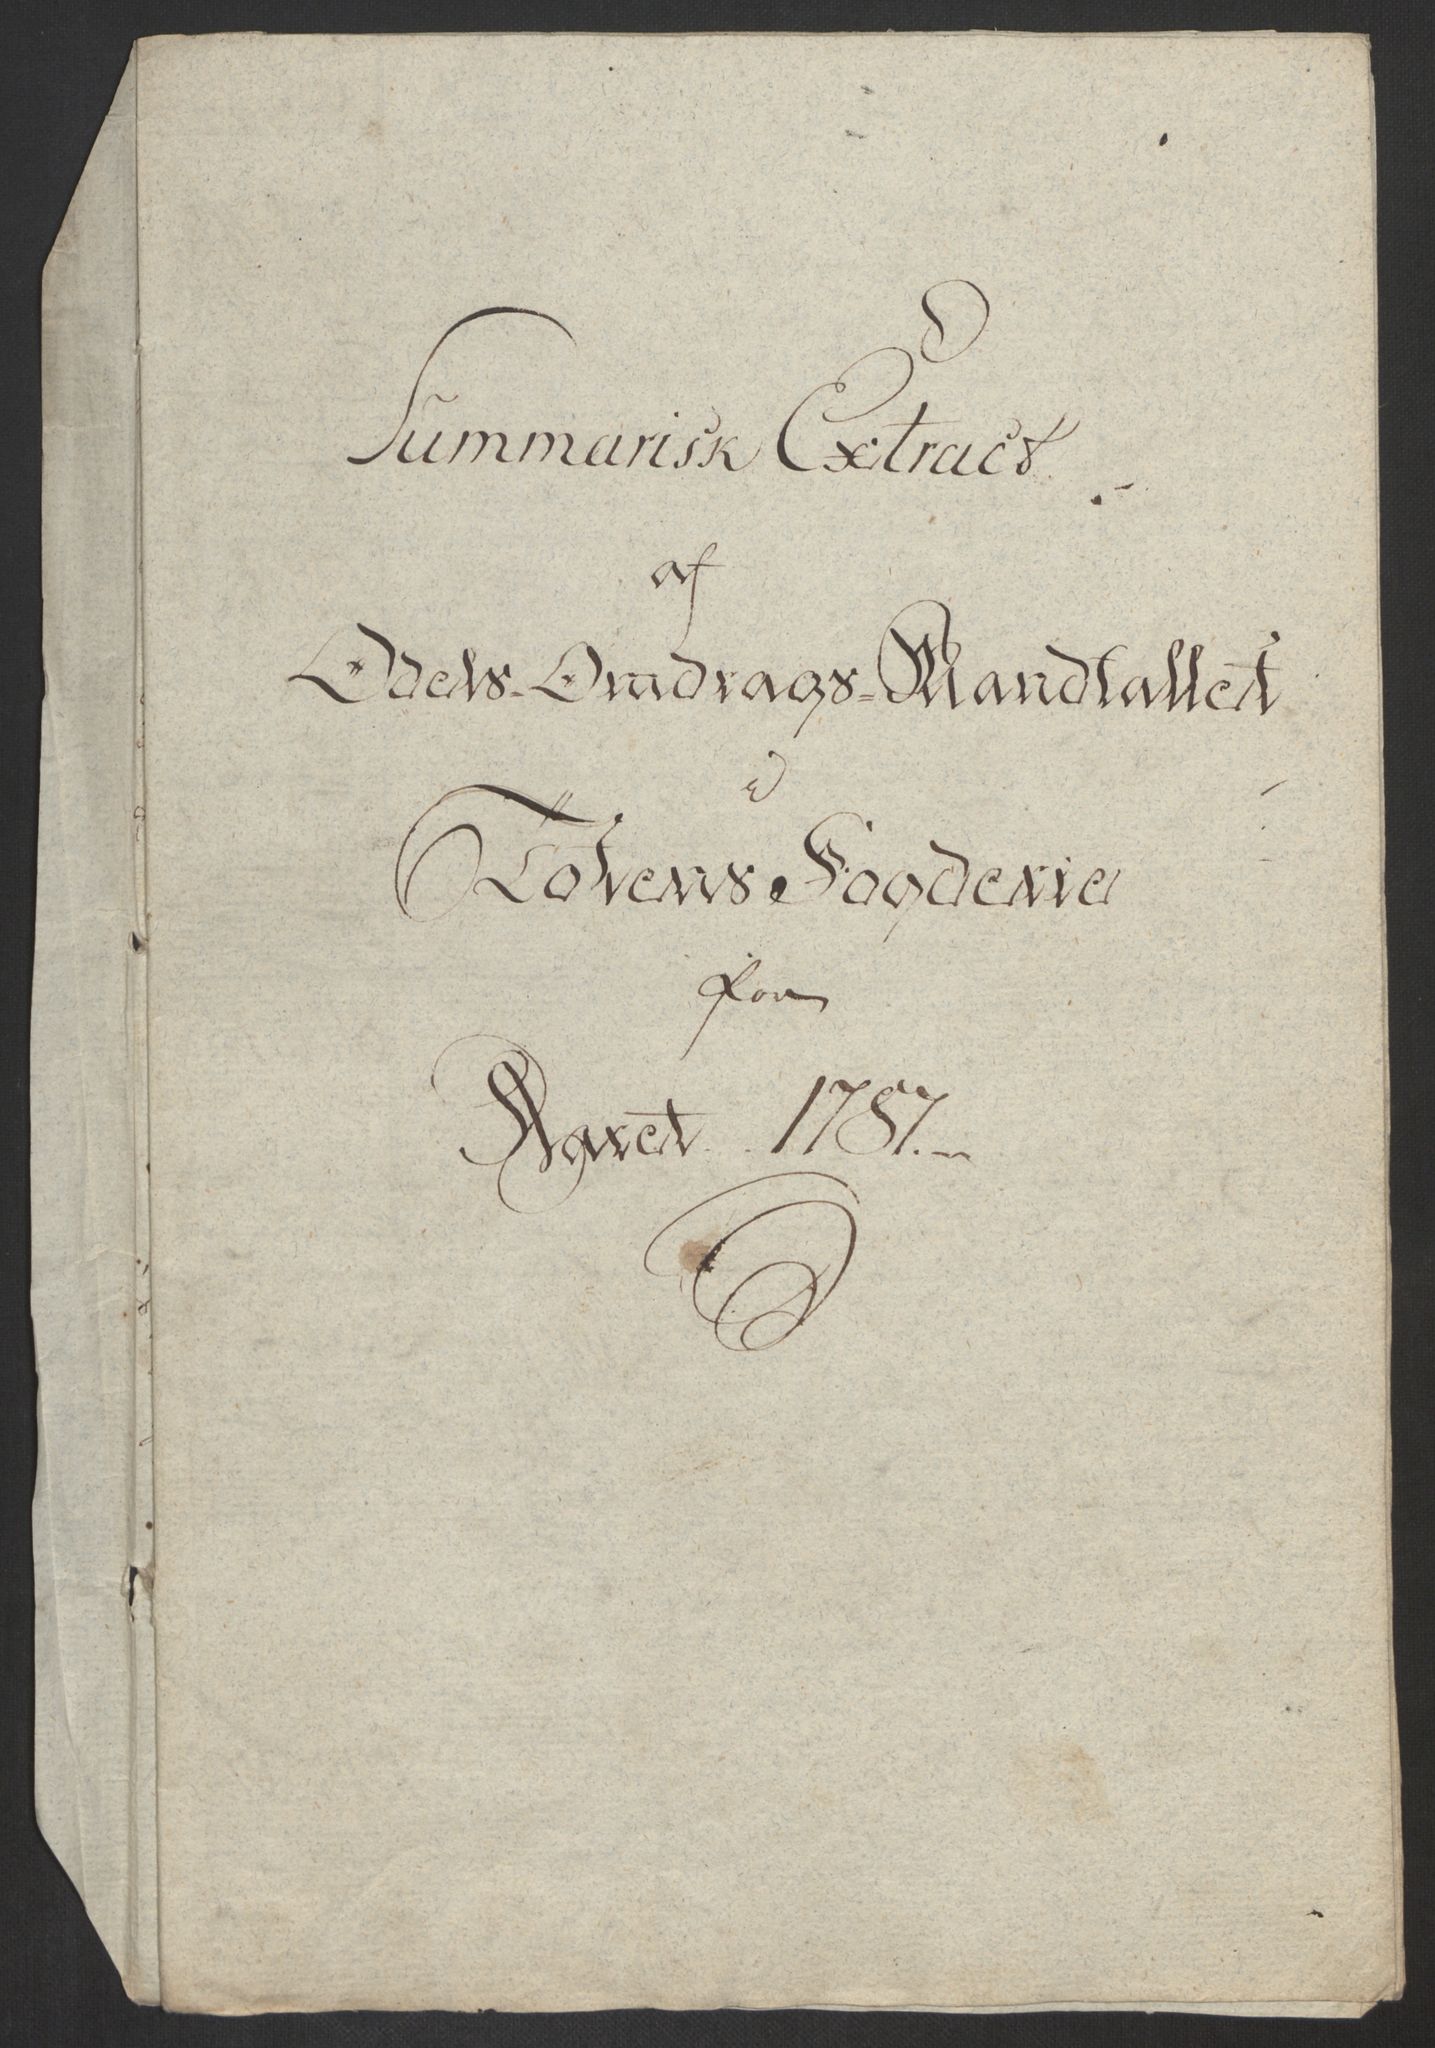 Summarisk Extract
af
Odels-Omdrags-Mandtallet
i
Totens Fogderie
for
Aaret 1787.